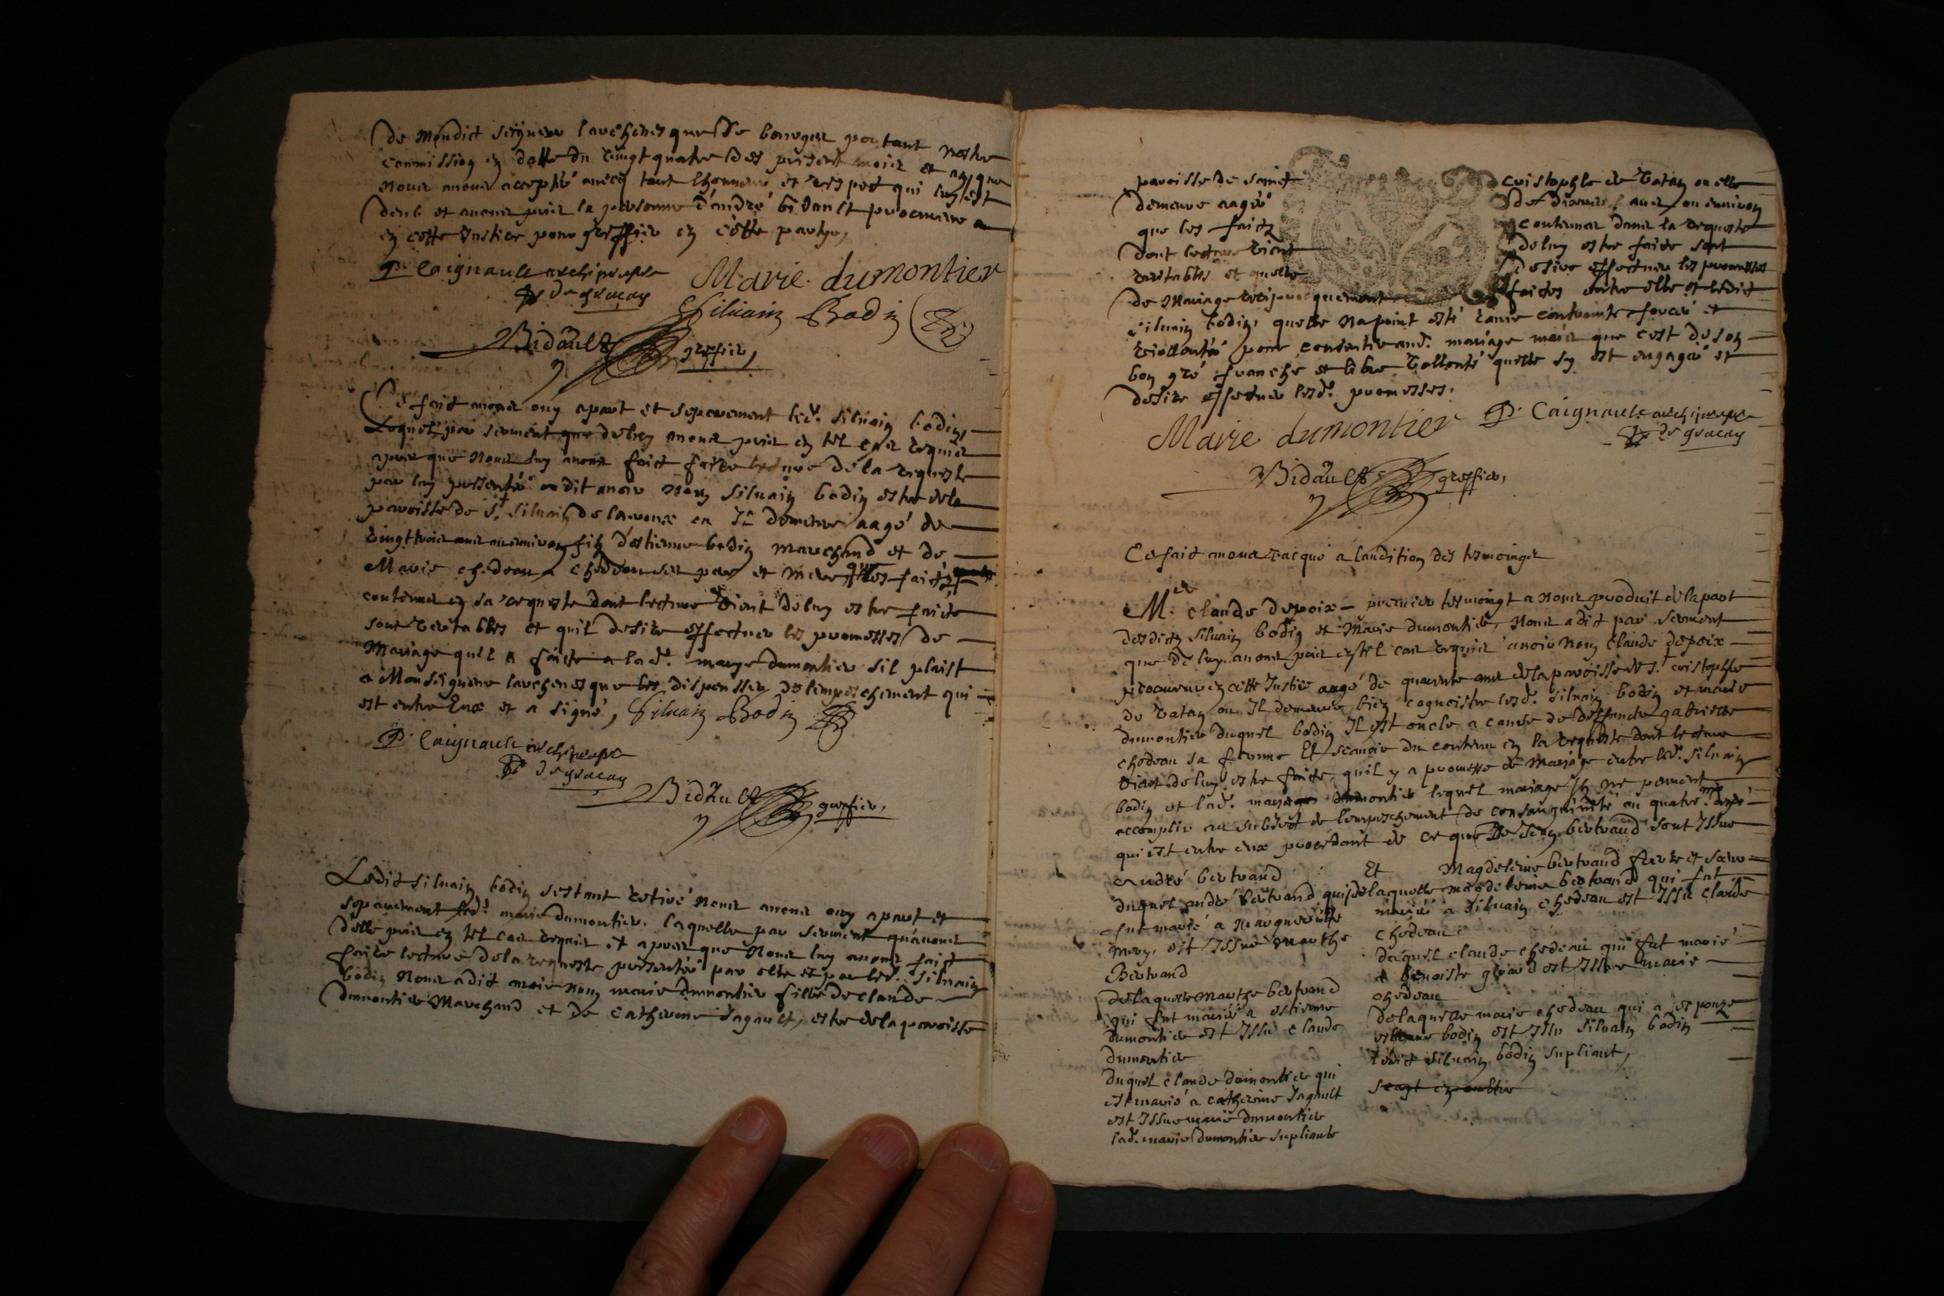 de mondict seigneur l'archevesque de bourges portant nostre
commission en datte du vingt quatre des present mois et an que
nous avons accepté avecq tout l'honneur et respect qui luy est
deub et avons pris la personne d'andré bidault procureur
en cette Justice pour greffier en cette partye,
P. Caignault archiprestre
de graçay
Marie dumontier
Silvain Bodin
Bidault greffier,
Ce fait avons ouy apart et separement led. silvain bodin
Lequel par serment que de luy avons pris en tel cas requis
apres que nous luy avons faict faire lecture de la requeste
par luy presentée a dit avoir nom silvain bodin estre de la
paroisse de st silvain de la voux ou Il demeure aagé de
vingt trois ans ou environ fils d'estienne bodin marchand et de
Marie chedeau ses pere et mere que les faicts
contenus en sa requeste dont lecture vient de luy estre faicte
sont veritables et quil desire effectuer les promesses de
Mariage quil a faicte a lad. marye dumontier sil plaist
a Monseigneur larchevesque les dispenser de lempeschement qui
est entre Eux et a signé, Silvain Bodin
P. Caignault archiprestre
de graçay
Bidault greffier,
Ledit silvain bodin sestant retiré nous avons ouy apart et
separement lad. marie dumontier, laquelle par serment quavons
delle pris en tel cas requis et apres que nous luy avons faict
faire lecture de la requeste presentée par elle et par led. silvain
bodin nous a dict avoir nom marie dumontier fille de claude
dumontier Marchand et de catherine Jagault, estre de la paroisse
paroisse de sainct cristophle de vatan ou elle
demeure aagée de dixneuf ans ou environ
que les faicts contenus dans la requeste
dont lecture vient de luy estre faicte sont
veritables et quelle desire effectuer les promesses
de Mariage reciproquement faictes entre elle et ledict
silvain bodin, quelle na point esté contrainte forcée et
viollentée pour consentir aud. mariage mais que cest de son
bon gré franche et libre vollonté quelle sy est engagée et
desire effectuer lesd. promesses.
Marie dumontier P. Caignault archiprestre
de graçay
Bidault greffier,
Ce fait avons vacqué a laudition des tesmoings
Me. claude depoix premier tesmoingt a nous produit de la part
desdicts silvain bodin et Marie dumontier, Nous a dict par serment
que de luy avons pris en tel cas requis avoir nom claude depoix
procureur en cette Justice aagé de quarente ans de la paroisse de st. cristophle
de vatan ou Il demeure bien cognoistre led. silvain bodin et marie
dumontier duquel bodin Il est oncle a cause de deffuncte gabrielle
chedeau sa femme Et scavoir du contenu en la requeste dont lecture
vient de luy estre faicte, quil y a promesse de mariage entre led. silvain
bodin et lad. marye dumontier lequel mariage Ils ne peuvent
accomplir au subject de lempeschement de consanguinité au quatre.me degré
qui est entre eux procedant de ce que de Jean bertrand sont Issus
André bertrand Et Magdeleine bertrand frere et soeur
duquel andré bertrand qui
fut marié à
est Issue marthe
Bertrand
de laquelle marthe bertrand
qui fut mariée a estienne
dumontier est Issu claude
dumontier
duquel claude dumontier qui
est marié a catherine Jagault
est Issue marie dumontier
lad. marie dumontier supliante
de laquelle magdeleine bertrand qui fut
mariée a silvain chedeau est Issu claude
chedeau
duquel claude chedeau qui fut marié
a benoiste girard est Issue marie
chedeau
de laquelle marie chedeau qui a espouzé
estienne bodin est Issu silvain bodin
ledict silvain bodin supliant,